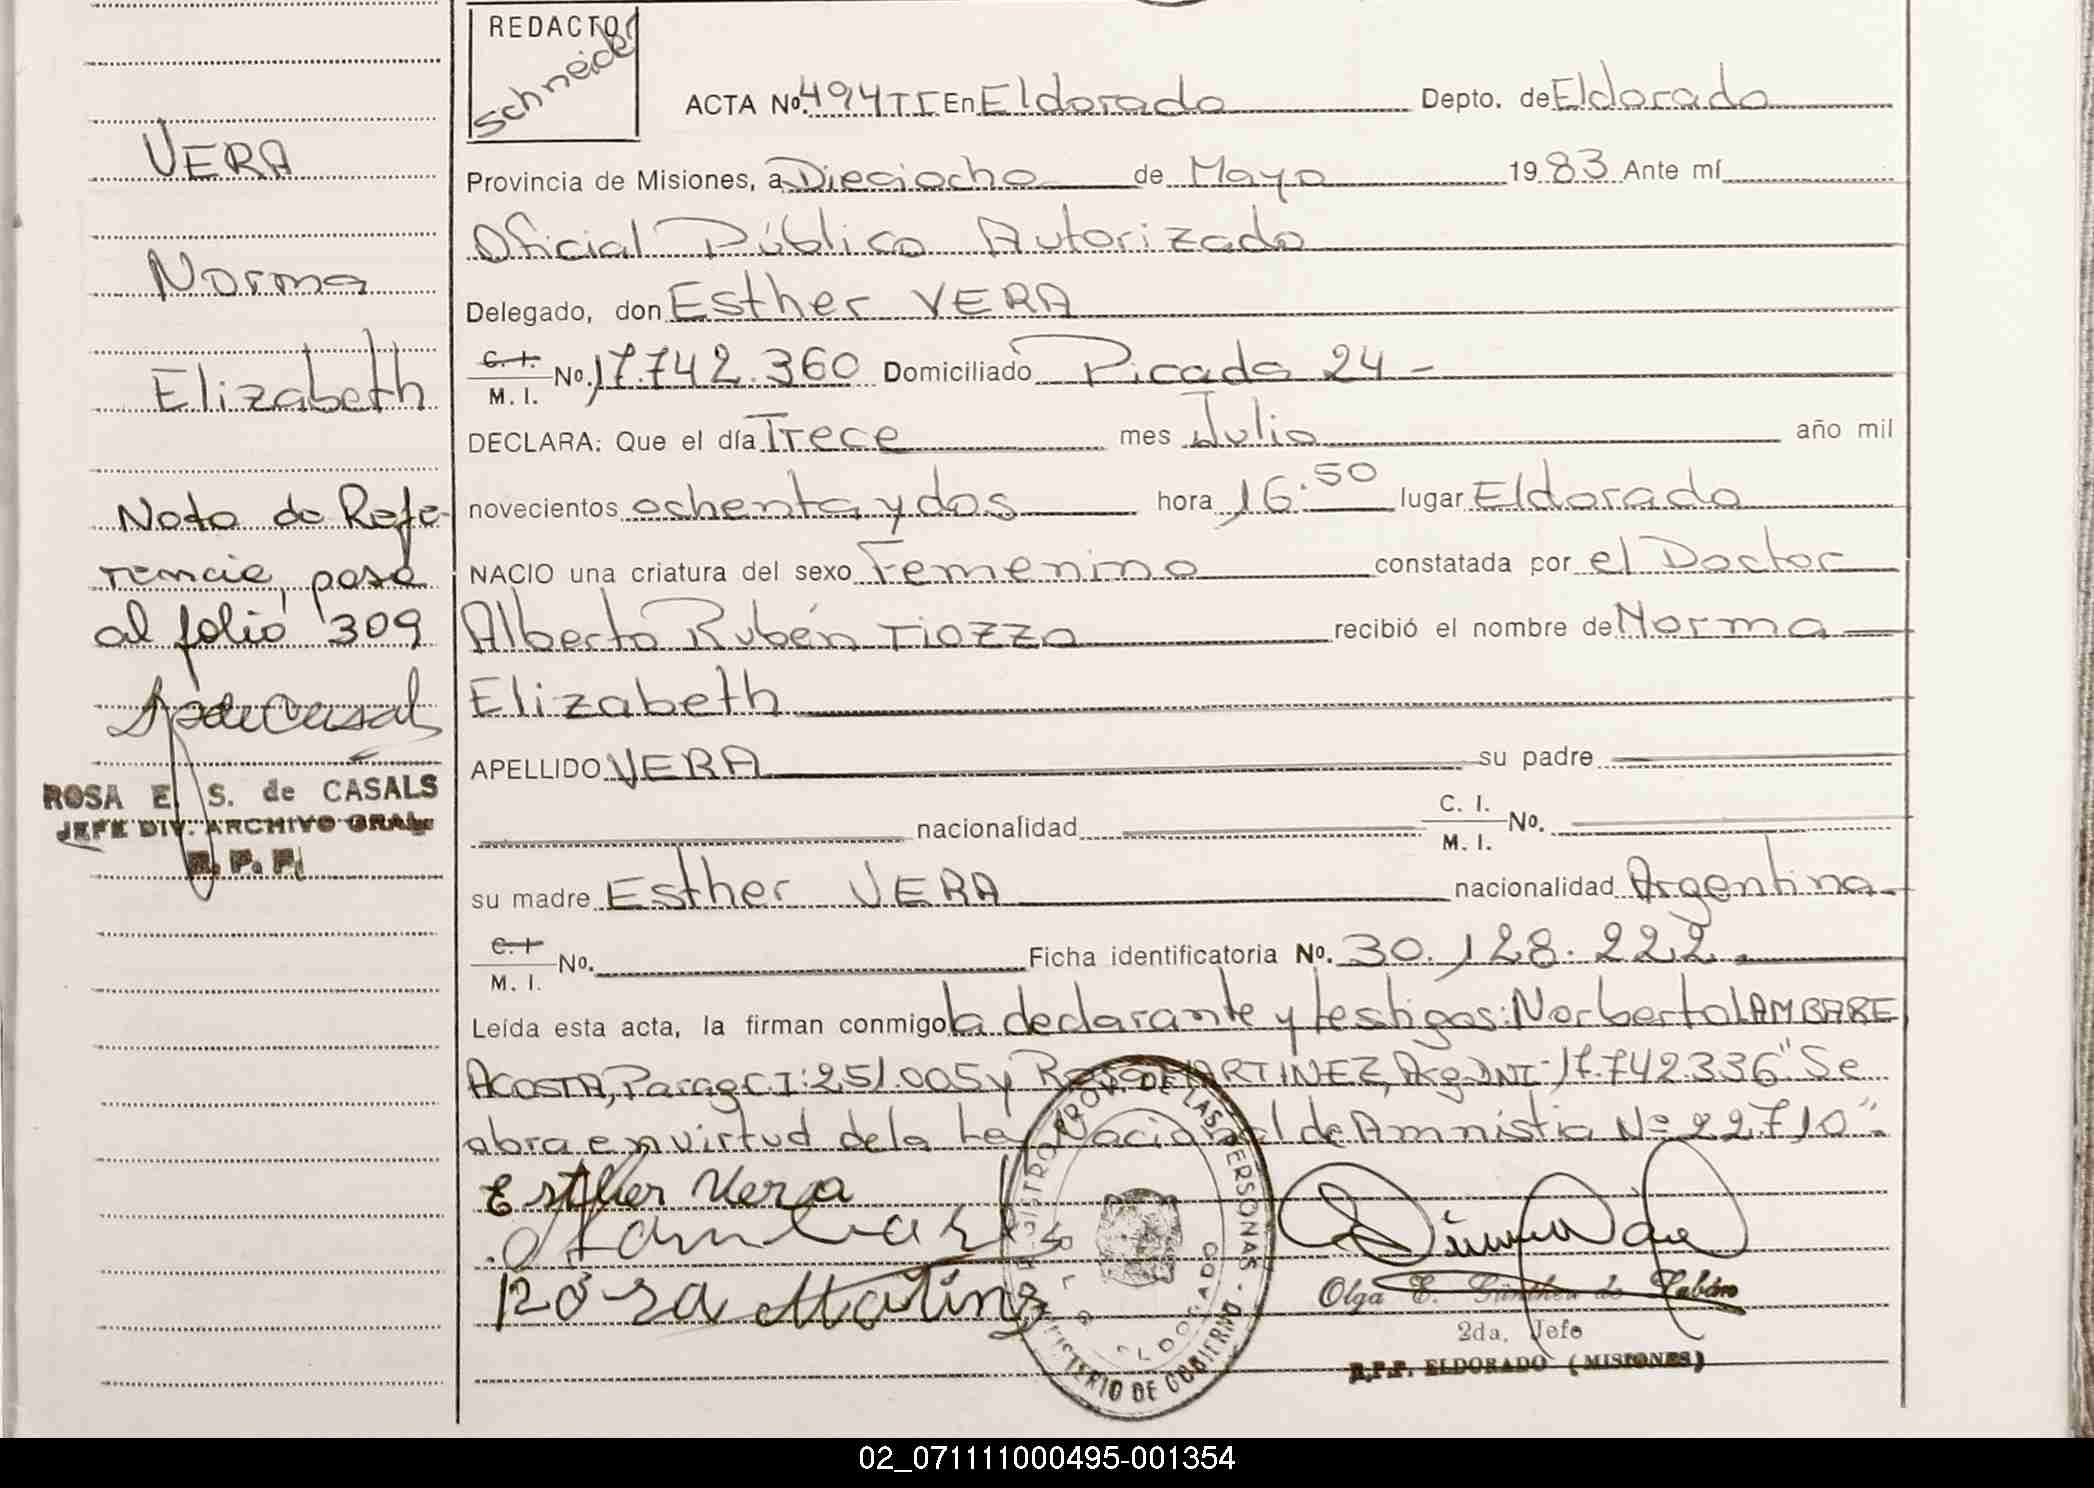 REDACTO
Schneider
ACTA No. 494 TI En Eldorado Depto. de Eldorado
Provincia de Misiones, a Dieciocho de Mayo 1983 Ante mí
Oficial Público Autorizado
Delegado, don Esther VERA
C. I. M. I. No. 17.742.360 Domiciliado Picada 24 -
DECLARA: Que el día Trece mes Julio año mil
novecientos ochenta y dos hora 16.50 lugar Eldorado
NACIO una criatura del sexo Femenino constatada por el Doctor
Alberto Rubén TIOZZO recibió el nombre de Norma
Elizabeth
APELLIDO VERA su padre
nacionalidad C. I. M. I. No.
su madre Esther VERA nacionalidad Argentina
C. I. M. I. No. Ficha identificatoria No. 30.128.222
Leída esta acta, la firman conmigo la declarante y testigos: Norberto LAMBARE
ACOSTA, Parag C.I: 251.005 y Rosa MARTINEZ, Arg DNI 17.742.336 "Se
abra en virtud de la Ley Nacional de Amnistia Nº 22.710".
Esther Vera
Rosa
Olga E. Günther de
2da. Jefe
R.P.P. ELDORADO (MISIONES)
REGISTRO PROV. DE LAS PERSONAS - MINISTERIO DE GOBIERNO
ELDORADO
VERA
Norma
Elizabeth
Nota de Refe-
rencia, pasa
al folio 309
ROSA E. S. de CASALS
JEFE DIV. ARCHIVO GRAL.
R. P. P.
02_071111000495-001354